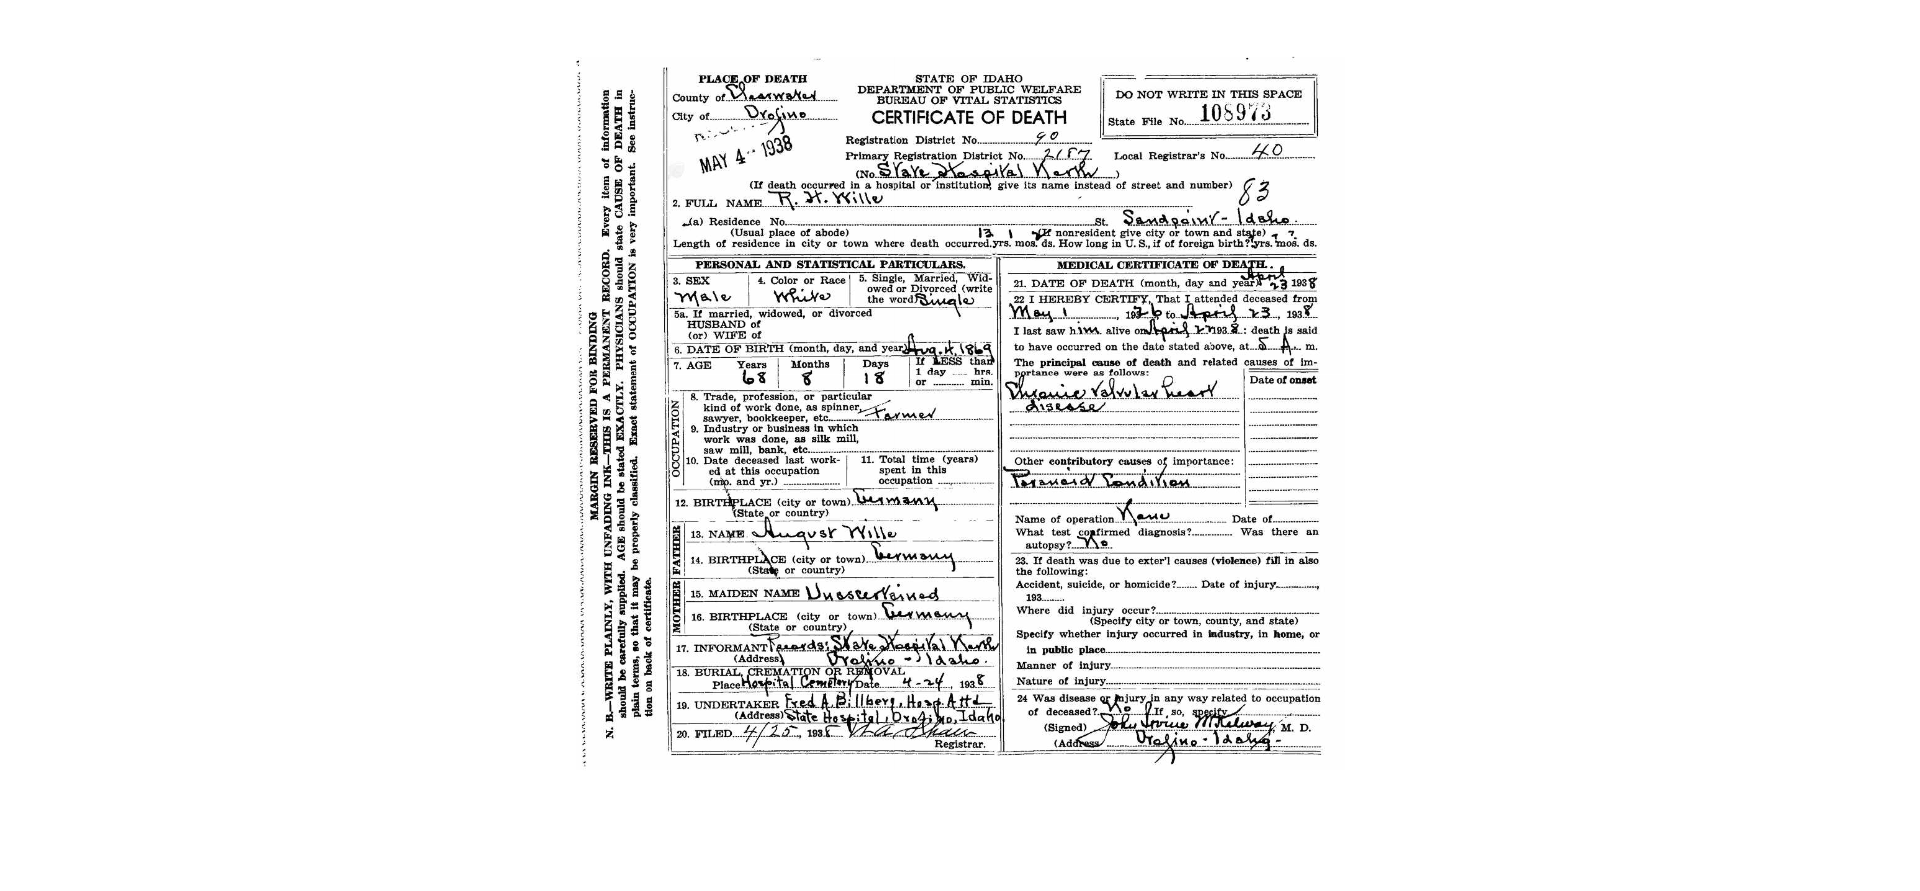 MARGIN RESERVED FOR BINDING
N. B.—WRITE PLAINLY, WITH UNFADING INK—THIS IS A PERMANENT RECORD. Every item of information
should be carefully supplied. AGE should be stated EXACTLY. PHYSICIANS should state CAUSE OF DEATH in
plain terms, so that it may be properly classified. Exact statement of OCCUPATION is very important. See instruc-
tion on back of certificate.
PLACE OF DEATH
County of Clearwater
City of Orofino
MAY 4 1938
STATE OF IDAHO
DEPARTMENT OF PUBLIC WELFARE
BUREAU OF VITAL STATISTICS
CERTIFICATE OF DEATH
DO NOT WRITE IN THIS SPACE
State File No. 108973
Registration District No. 90
Primary Registration District No. 2187 Local Registrar's No. 40
(No. State Hospital North)
(If death occurred in a hospital or institution, give its name instead of street and number)
83
2. FULL NAME R. H. Wille
(a) Residence No. St. Sandpoint - Idaho.
(Usual place of abode) (If nonresident give city or town and state)
Length of residence in city or town where death occurred. yrs. mos. ds. How long in U. S., if of foreign birth? yrs. mos. ds.
PERSONAL AND STATISTICAL PARTICULARS.
3. SEX Male
4. Color or Race White
5. Single, Married, Wid-
owed or Divorced (write
the word) Single
5a. If married, widowed, or divorced
HUSBAND of
(or) WIFE of
6. DATE OF BIRTH (month, day, and year) Aug. 4, 1869
7. AGE Years 68 Months 8 Days 18
If LESS than
1 day hrs.
or min.
OCCUPATION
8. Trade, profession, or particular
kind of work done, as spinner,
sawyer, bookkeeper, etc. Farmer
9. Industry or business in which
work was done, as silk mill,
saw mill, bank, etc.
10. Date deceased last work-
ed at this occupation
(mo. and yr.)
11. Total time (years)
spent in this
occupation
12. BIRTHPLACE (city or town) Germany
(State or country)
FATHER
13. NAME August Wille
14. BIRTHPLACE (city or town) Germany
(State or country)
MOTHER
15. MAIDEN NAME Unascertained
16. BIRTHPLACE (city or town) Germany
(State or country)
17. INFORMANT Records: State Hospital North
(Address) Orofino - Idaho.
18. BURIAL, CREMATION OR REMOVAL
Place Hospital Cemetery Date 4-24, 1938
19. UNDERTAKER Fred A Billberg, Hosp Attd
(Address) State Hospital, Orofino, Idaho
20. FILED 4/25, 1938
Registrar.
MEDICAL CERTIFICATE OF DEATH.
21. DATE OF DEATH (month, day and year) April 23 1938
22 I HEREBY CERTIFY, That I attended deceased from
May 1, 1926 to April 23, 1938
I last saw him alive on April 1938: death is said
to have occurred on the date stated above, at 5 A. m.
The principal cause of death and related causes of im-
portance were as follows:
Date of onset
Chronic Valvular heart
disease
Other contributory causes of importance:
Paranoid Condition
Name of operation None Date of
What test confirmed diagnosis? Was there an
autopsy? No
23. If death was due to exter'l causes (violence) fill in also
the following:
Accident, suicide, or homicide? Date of injury
193
Where did injury occur?
(Specify city or town, county, and state)
Specify whether injury occurred in industry, in home, or
in public place
Manner of injury
Nature of injury
24 Was disease or injury in any way related to occupation
of deceased? No If so, specify
(Signed) John Irvine McKelway, M. D.
(Address) Orofino - Idaho -